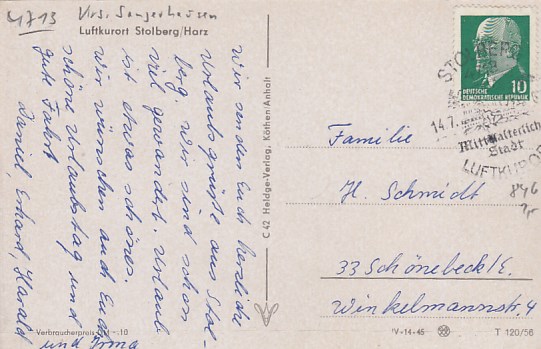 4713 Krs. Sangerhausen
Luftkurort Stolberg/Harz
Wir senden Euch herzliche
Urlaubsgrüße aus Stol-
berg. Wir sind schon
viel gewandert. Urlaub
ist etwas schönes.
Wir wünschen auch Euch
schöne Urlaubstag und
gute Fahrt
Daniel, Erhard, Harald
und Irma
Verbraucherpreis DM -.10
C 42 Heldge-Verlag, Köthen/Anhalt
10
DEUTSCHE
DEMOKRATISCHE REPUBLIK
STOLBERG
14.7.
Mittelalterliche
Stadt
LUFTKURORT
846
Familie
H. Schmidt
33 Schönebeck/E.
Winkelmannstr. 4
V-14-45
T 120/56